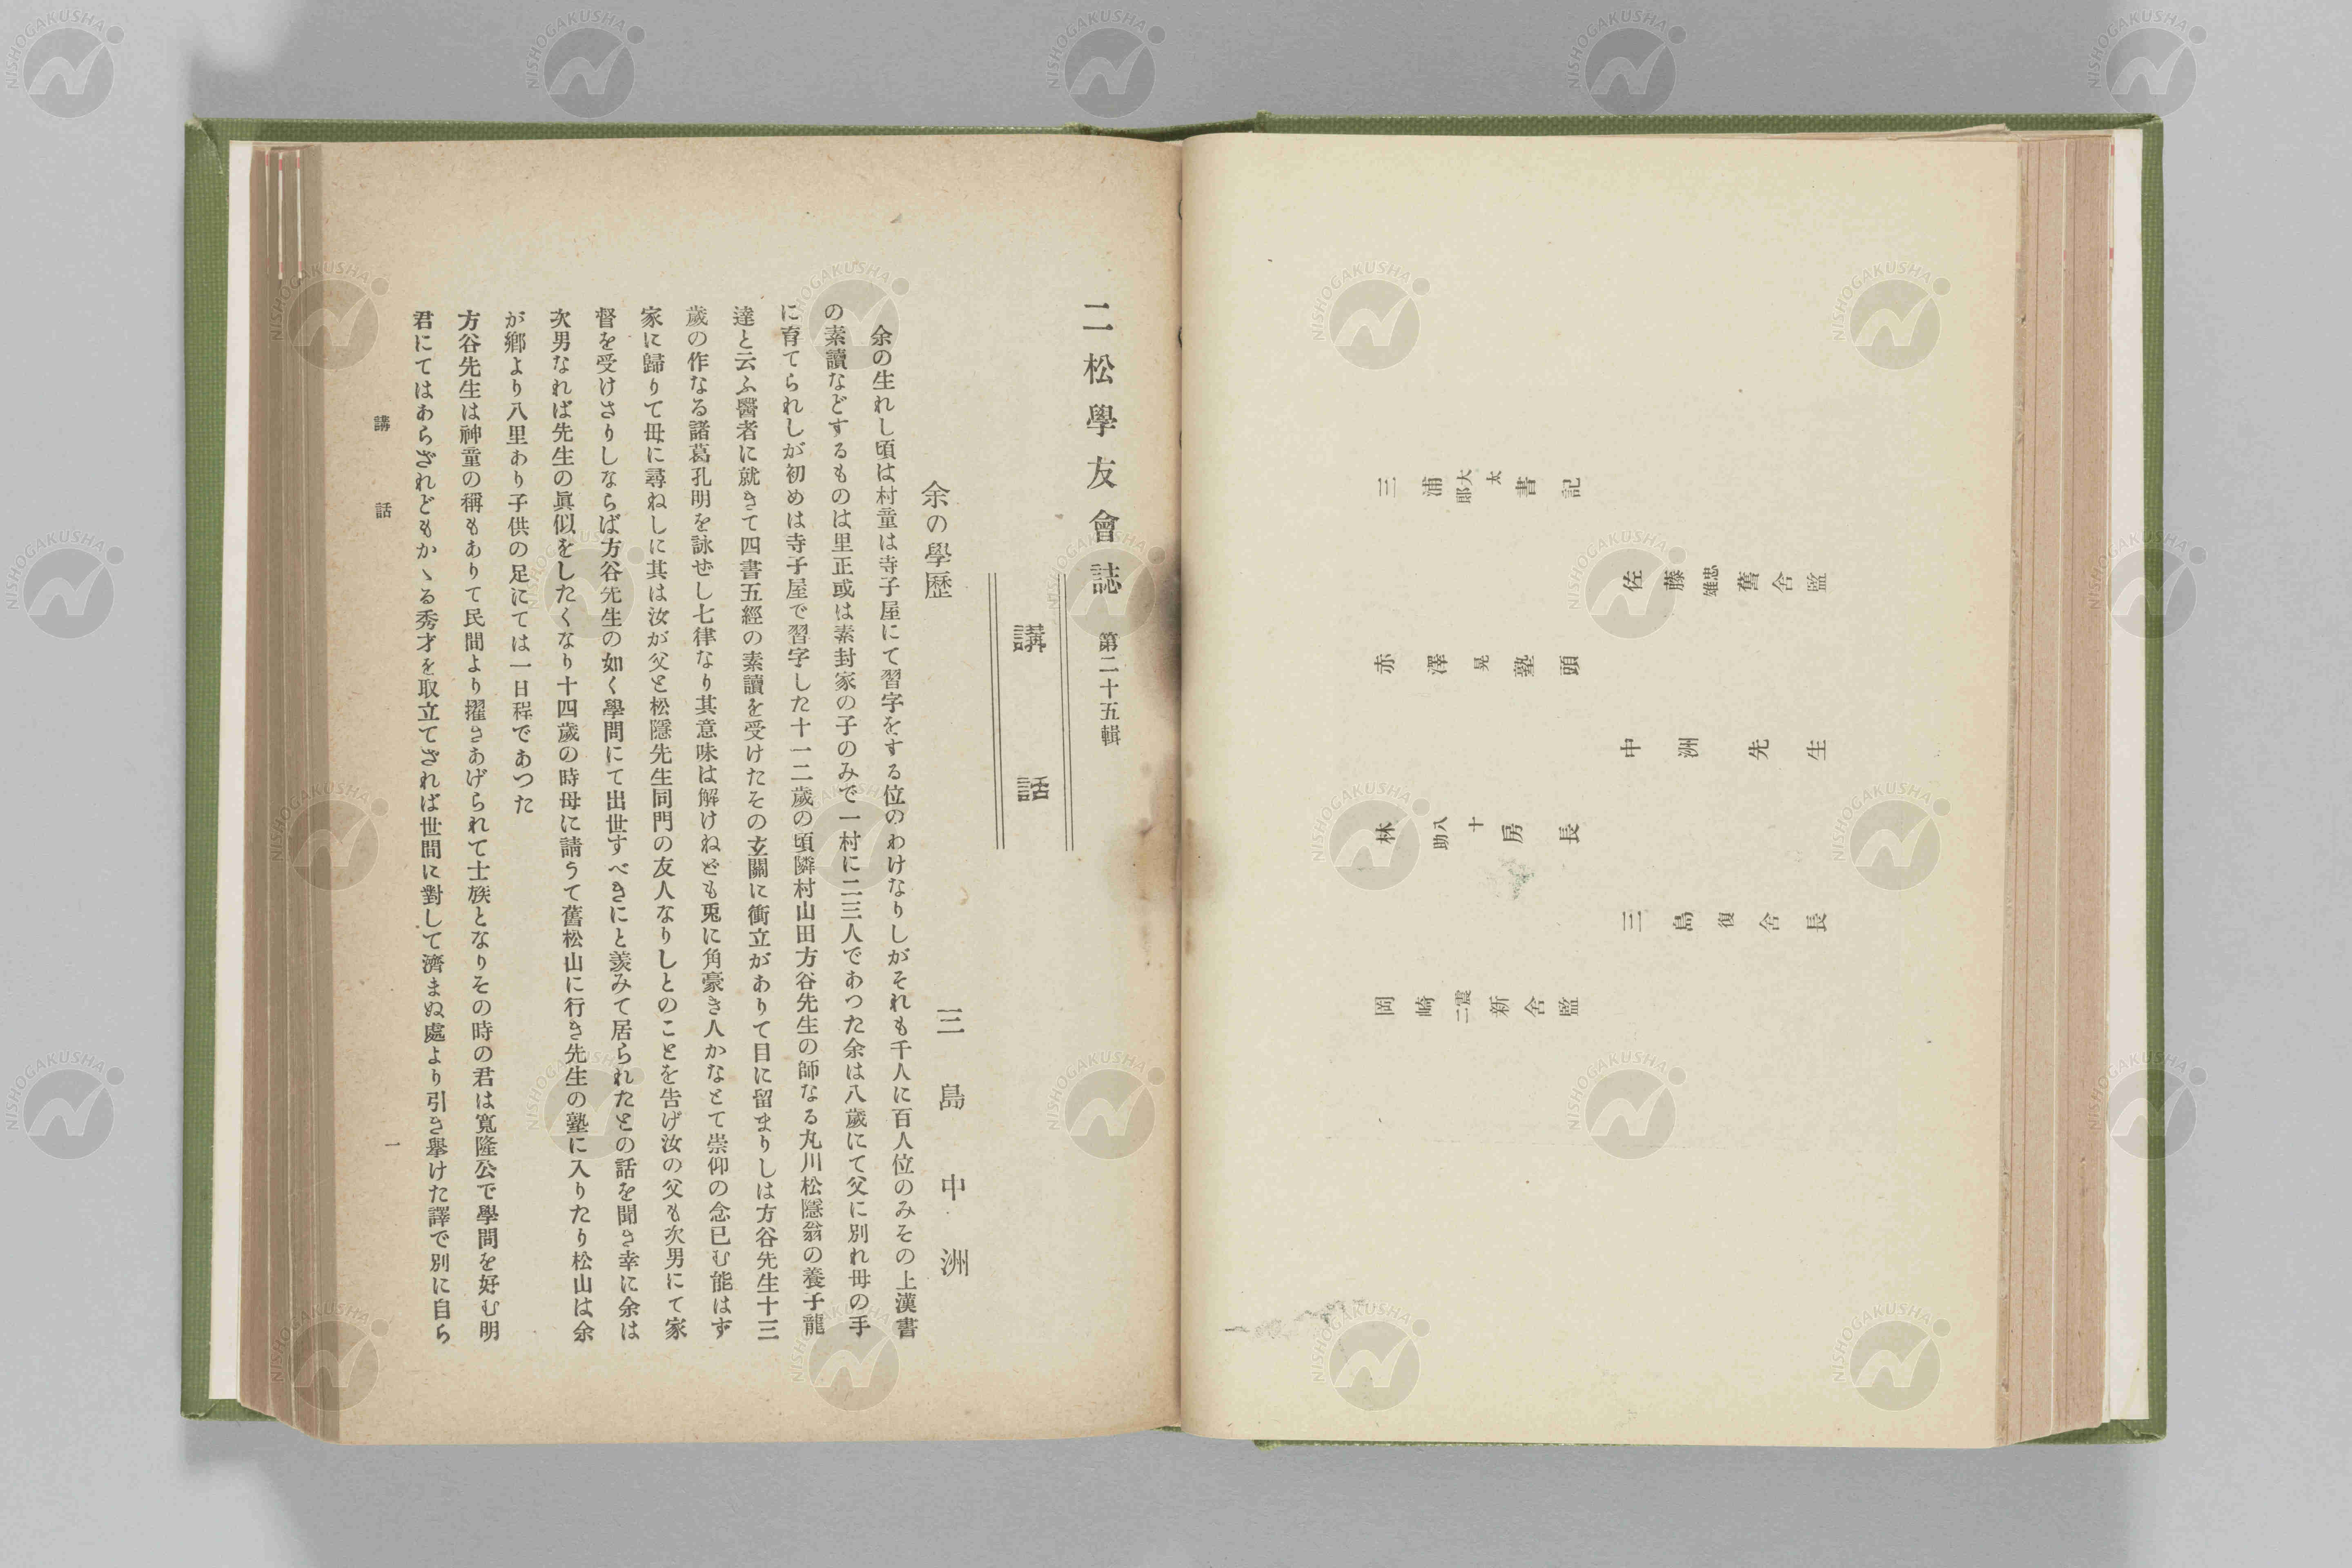 三浦大太郎書記
佐藤忠雄舊舍監
赤澤晃塾頭
中洲先生
林八十助房長
三島復舍長
岡崎震二新舍監
二松學友會誌 第二十五輯
講話
余の學歷 三島中洲
余の生れし頃は村童は寺子屋にて習字をする位のわけなりしがそれも千人に百人位のみその上漢書
の素讀などするものは里正或は素封家の子のみで一村に二三人であつた余は八歲にて父に別れ母の手
に育てられしが初めは寺子屋で習字した十一二歲の頃隣村山田方谷先生の師なる丸川松隱翁の養子龍
達と云ふ醫者に就きて四書五經の素讀を受けたその玄關に衝立がありて目に留まりしは方谷先生十三
歲の作なる諸葛孔明を詠せし七律なり其意味は解けねども兎に角豪き人かなとて崇仰の念已む能はず
家に歸りて母に尋ねしに其は汝が父と松隱先生同門の友人なりしとのことを告げ汝の父も次男にて家
督を受けさりしならば方谷先生の如く學問にて出世すべきにと羨みて居られたとの話を聞き幸に余は
次男なれば先生の眞似をしたくなり十四歲の時母に請うて舊松山に行き先生の塾に入りたり松山は余
が鄕より八里あり子供の足にては一日程であつた
方谷先生は神童の稱もありて民間より擢きあげられて士族となりその時の君は寬隆公で學問を好む明
君にてはあらざれどもかゝる秀才を取立てざれば世間に對して濟まぬ處より引き擧けた譯で別に自ら
講話
一